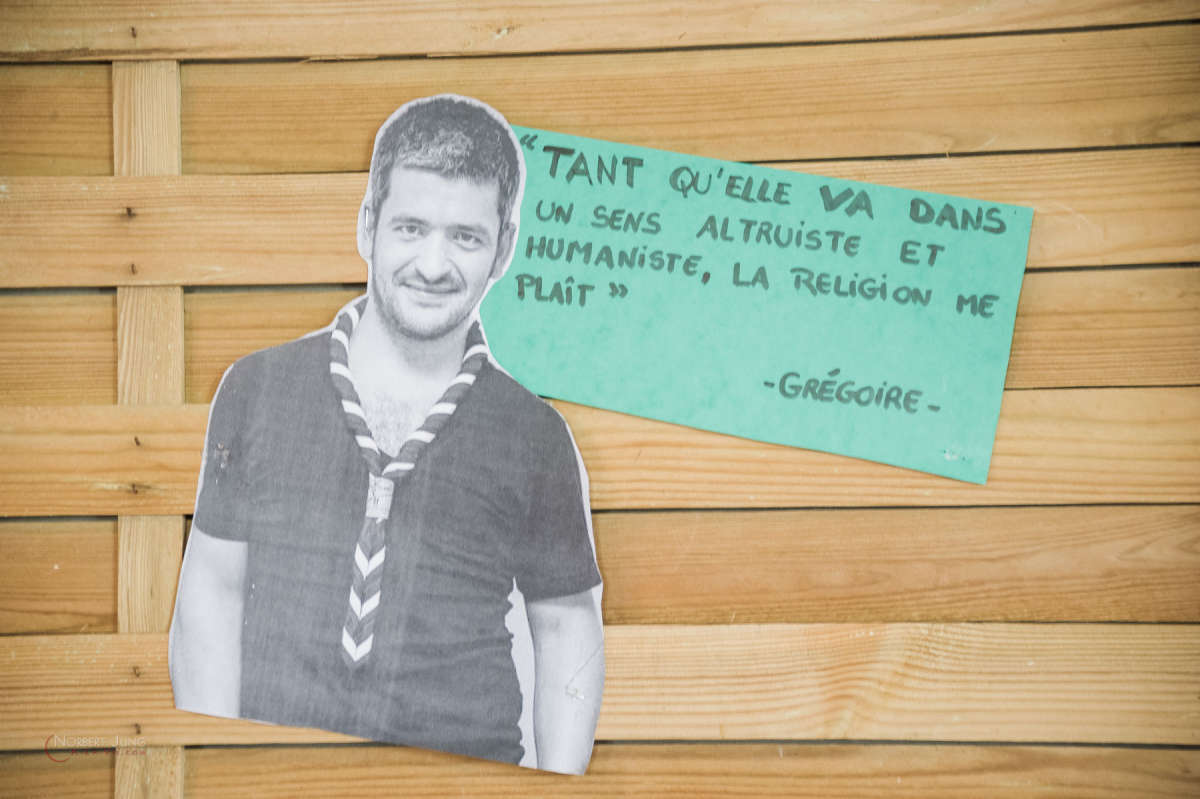 “TANT QU'ELLE VA DANS
UN SENS ALTRUISTE ET
HUMANISTE, LA RELIGION ME
PLAÎT”
-GRÉGOIRE-
NORBERT JUNG